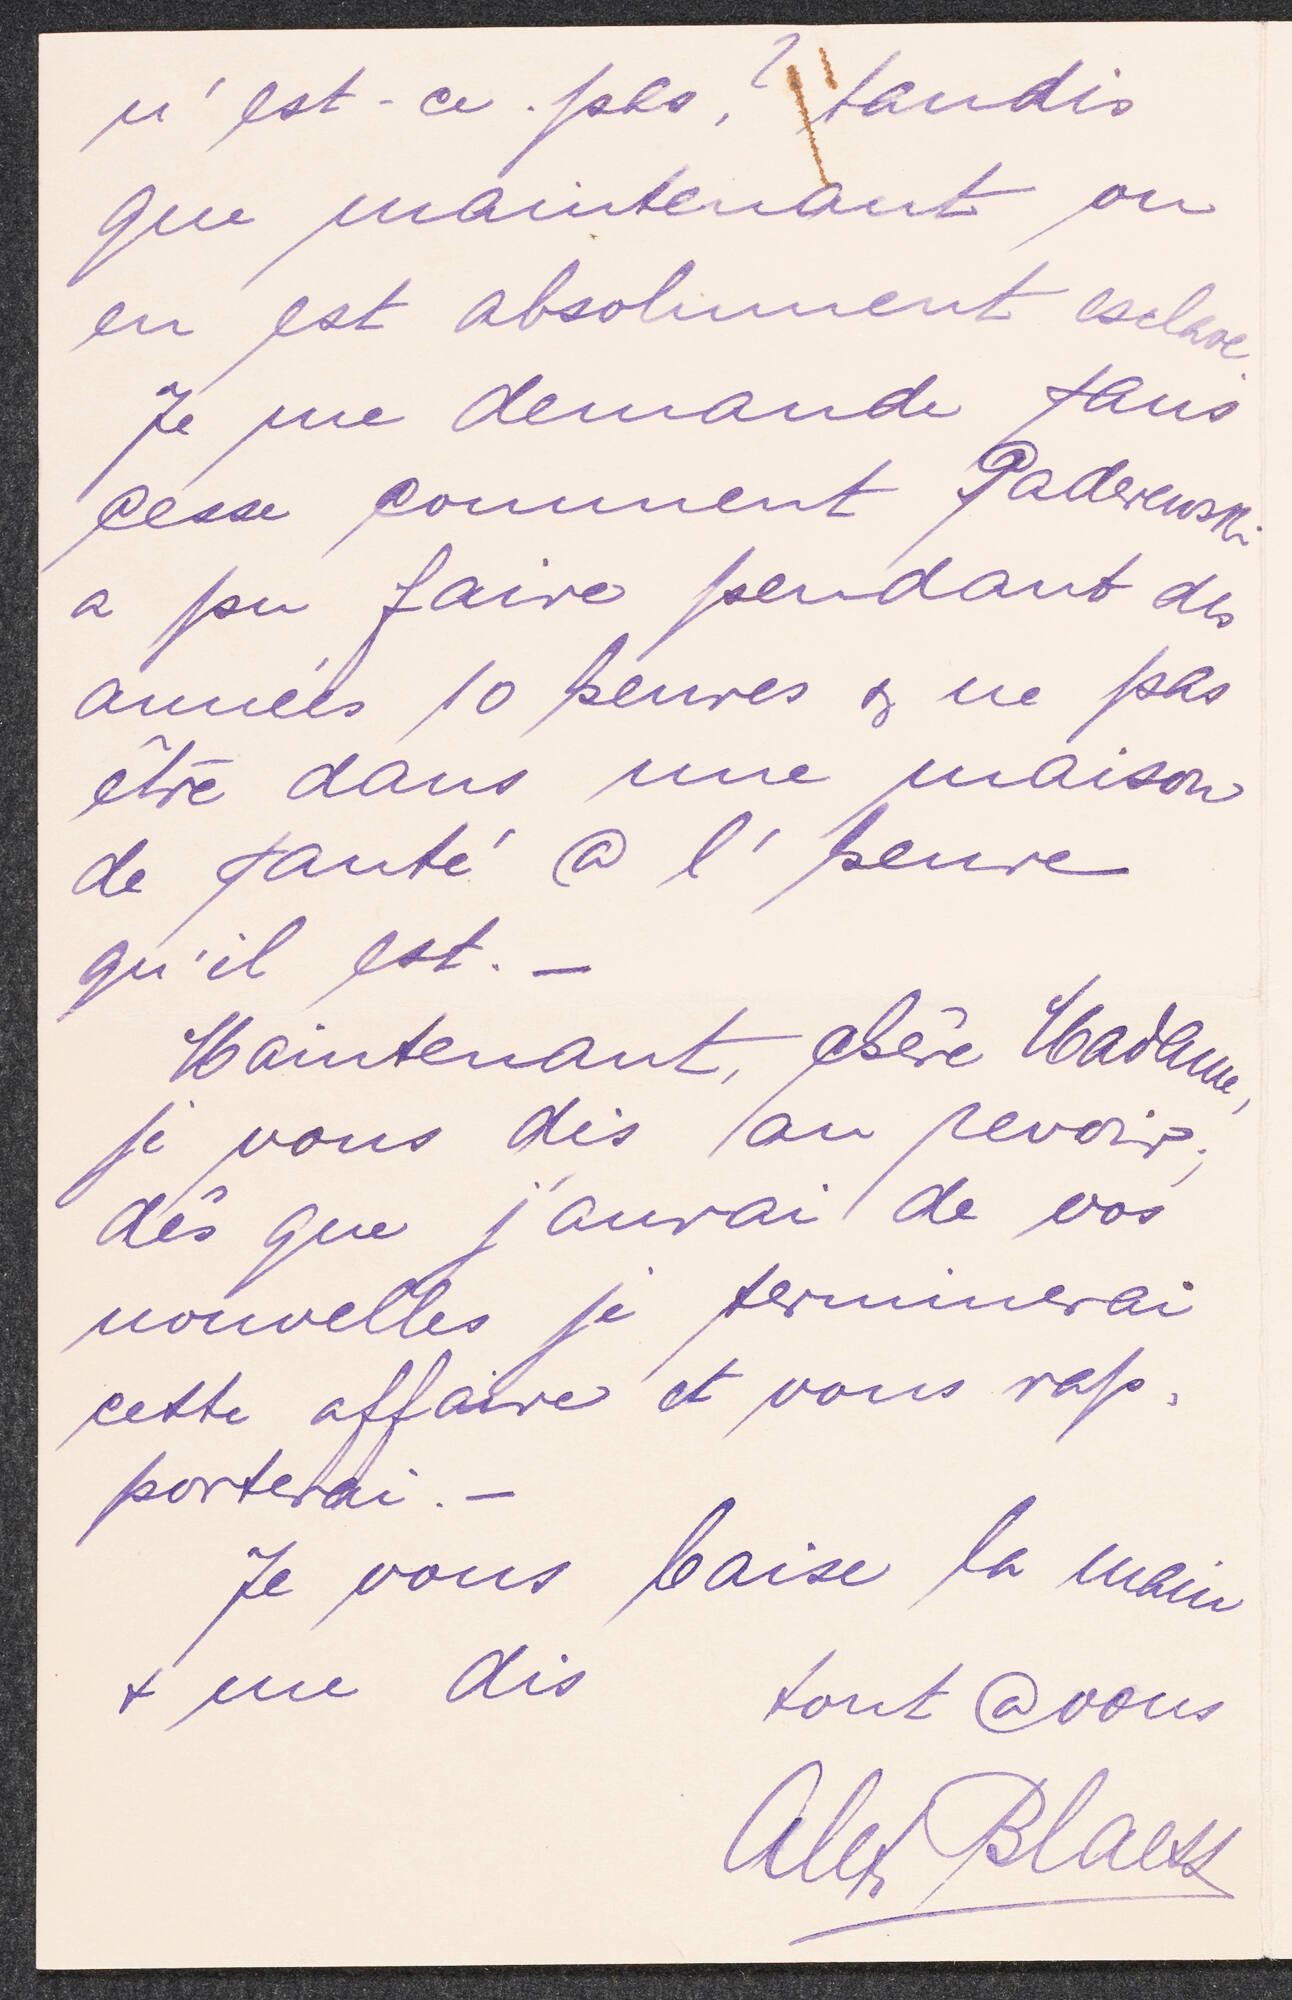 n'est-ce-pas,? tandis
que maintenant on
en est absolument esclave.
Je me demande sans
cesse comment Paderewski
a pu faire pendant des
années 10 heures & ne pas
être dans une maison
de santé @ l'heure
qu'il est. —
Maintenant, chère Madame,
je vous dis au revoir;
dès que j'aurai de vos
nouvelles je terminerai
cette affaire et vous rap-
porterai. —
Je vous baise la main
& me dis tout @ vous
Alex Blaess